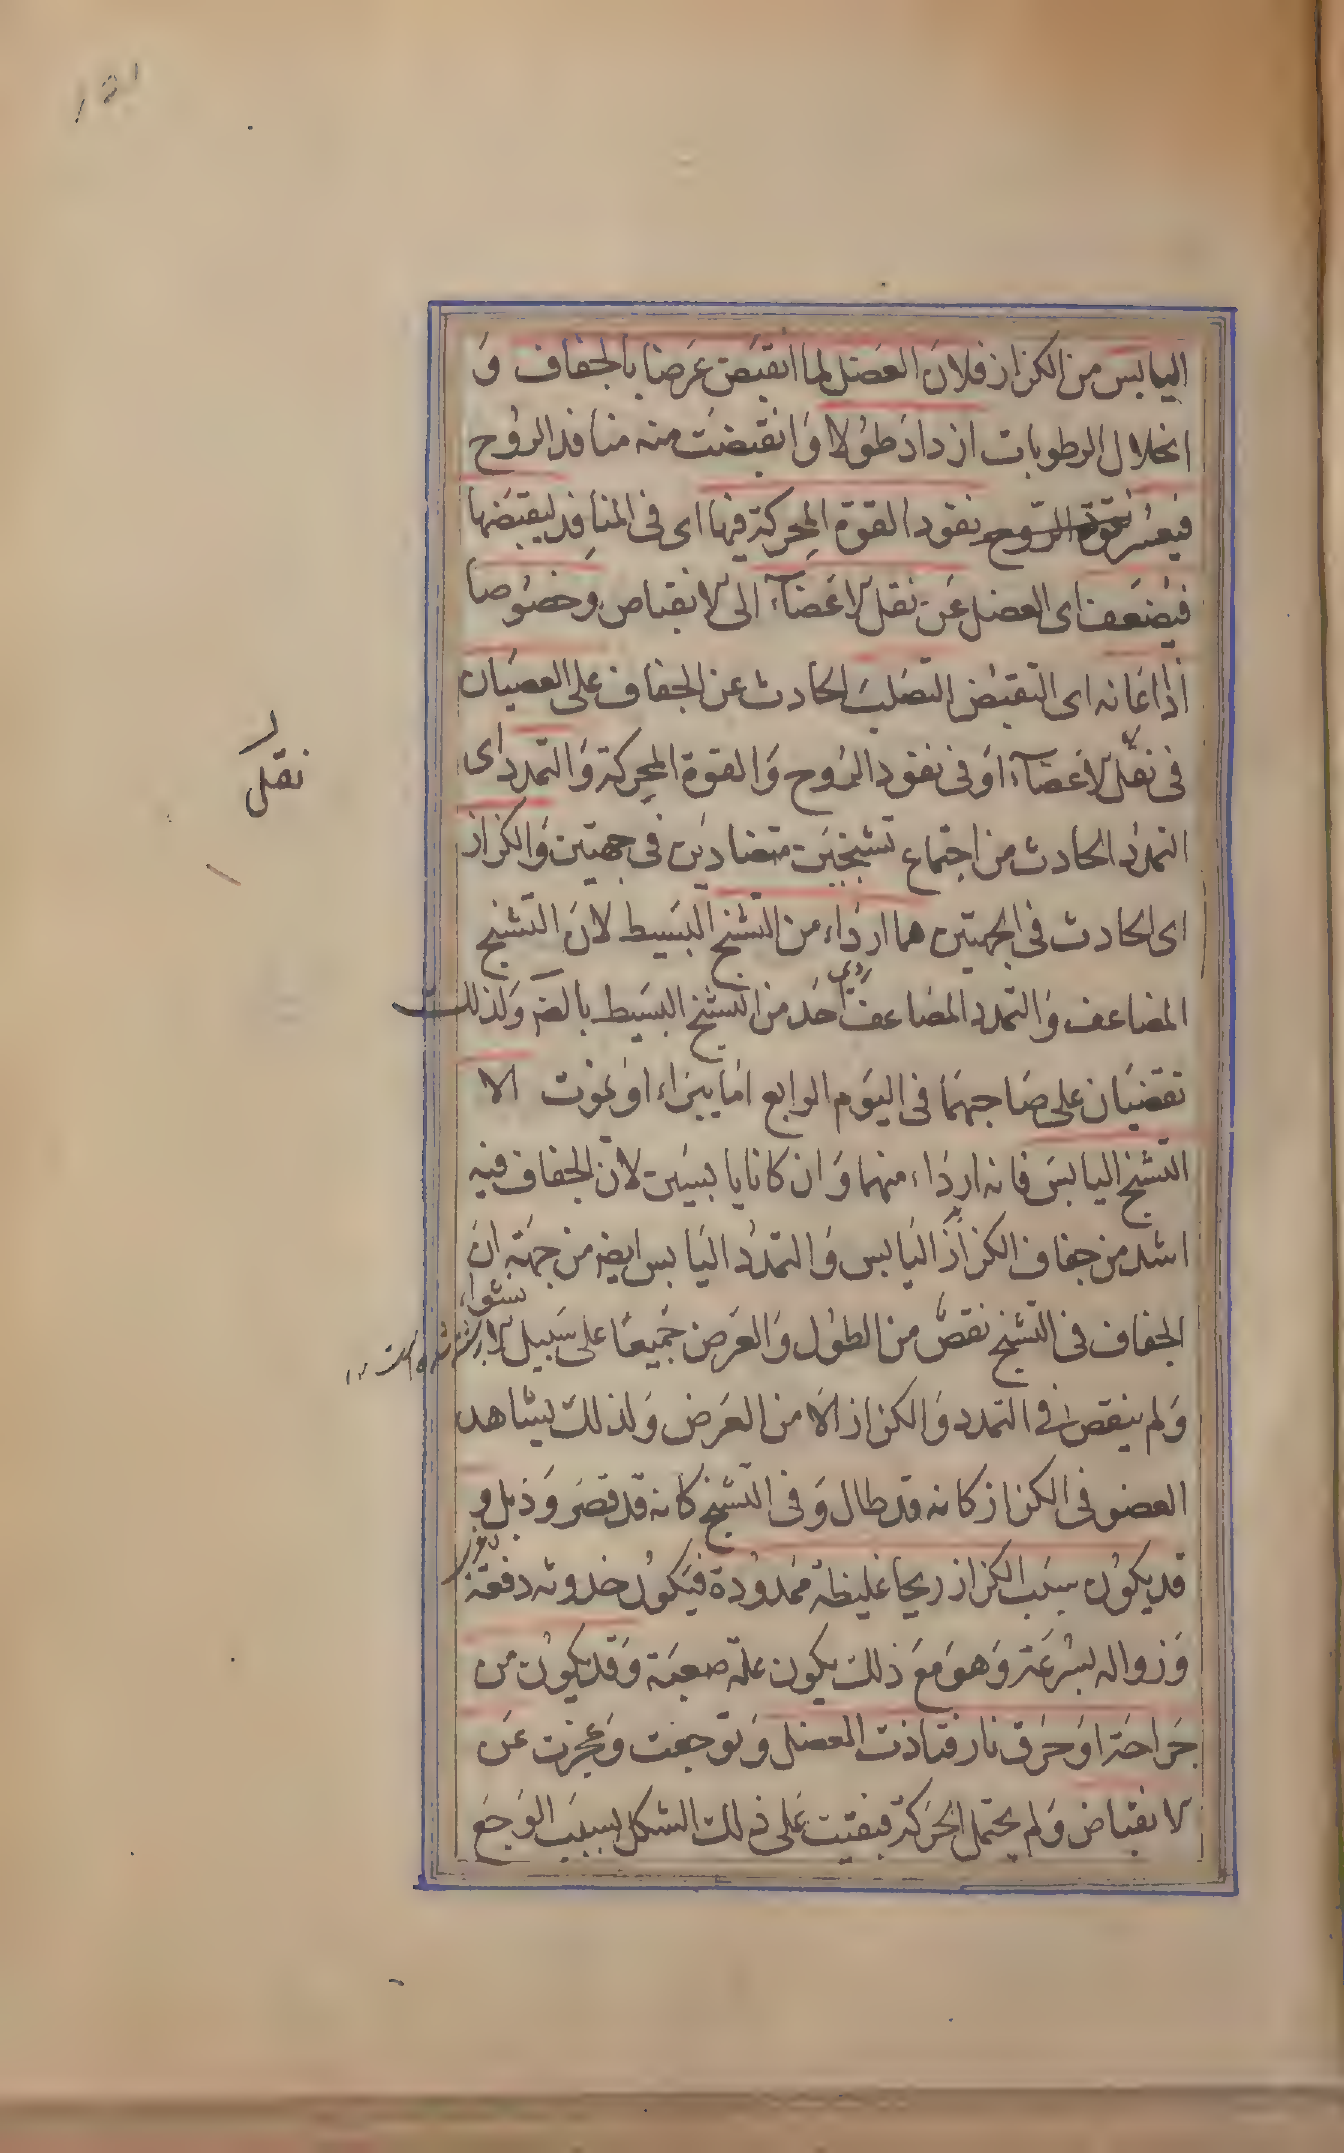 اليابس من الكزاز فلان العضل لما انقبض عرضا بالجفاف و
انحلال الرطوبات ازداد طولا و انقبضت منه منافذ الروح
فيعسر نفوذ القوة المحركة فيها اى فى المنافذ ليقبضها
فيضعف اى العضل عن نقل الاعضآء الى الانقباص وخصوصا
اذا اعانه اى التقبض التصلب الحادث عن الجفاف على العصيان
فى نقل الاعضآء او فى نفود الروح و القوة المحركة و التمدد اى
نقل
التمدد الحادث من اجتماع تشنجين متضادين فى جهتين و الكزاز
اى الحادث فى الجهتين هما ارداء من التشنج البسيط لان التشنج
المضاعف و التمدد المضاعف ردى احد من التشنج البسيط بالضرّ ولذلك
تقضيان على صاحبهما فى اليوم الرابع اما يبراء او يموت الا
التشنج اليابس فانه ارداء منهما و ان كانا يابسين لان الجفاف فيه
اشد من جفاف الكزاز اليابس و التمدد اليابس ايضا من جهة ان
الجفاف فى التشنج نقص من الطول و العرض جميعًا على سبيل
ولم ينقص فى التمدد و الكزاز الا من العرض ولذلك يشاهد
العضو فى الكزاز كانه قد طال و فى التشنج كانه قد قصر و ذبل و
قد يكون سبب الكزاز ريحا غليظة ممدودة فيكون حدوثه دفعة
و زواله بسرعة و هو مع ذلك يكون علة صعبة و قد يكون من
جراحة او حرق نار فتاذت العضل و توجعت و عجزت عن
الانقباض و لم يحتمل الحركة فبقيت على ذلك الشكل لسبب الوجع